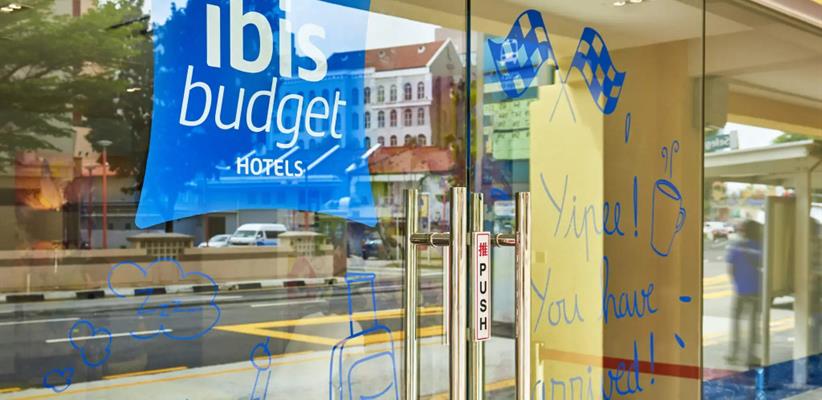 ibis
budget
HOTELS
Yipee!
You have
arrived!
推
PUSH
ZZZ...